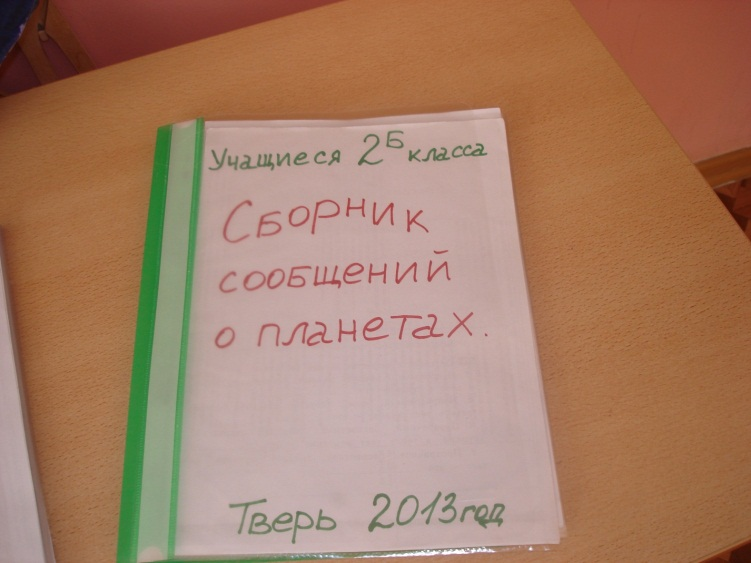 Учащиеся 2Б класса
Сборник
сообщений
о планетах.
Тверь 2013 год